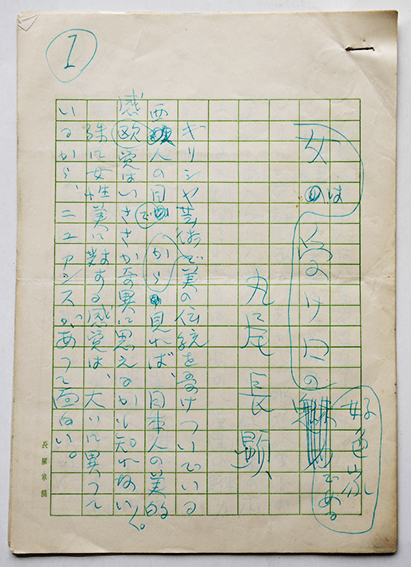 1
女のは受け口の
好色家である
丸尾長顕
ギリシャ芸術で美の伝統を受けついでいる
西欧人の目から見れば、日本人の美的
感覚はいささか奇異に思えるかも知れない。
殊に女性美に対する感覚は、大いに異って
いるから、ニュアンスがあって面白い。